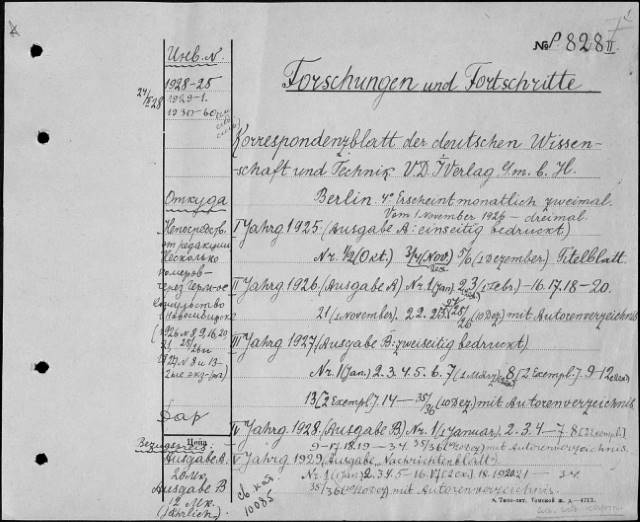 № P. 828 II
Инв. N.
1928-25
1929-1.
1930-60
24/II 28
Forschungen und Fortschritte
Korrespondenzblatt der deutschen Wissen-
schaft und Technik V.D.I Verlag G.m.b.H.
Berlin. 4° Erscheint monatlich zweimal.
Vom 1 November 1926 - dreimal.
Откуда
Непосредств.
от редакции
Несколько
номеров -
через Герм-ое
Консульство
(Новосибирск
(1926 N 8, 9, 16, 20
1927 N 8 и 13 -
2ые экз-ры)
Дар
I Jahrg 1925. (Ausgabe A: einseitig bedruckt)
Nr. 1/2 (Okt.) 3/4 (Nov.) 5/6 (1 Dezember) Titelblatt.
II Jahrg 1926. (Ausgabe A) Nr. 1 (Jan.) 2, 3 (1 Febr.) - 16. 17. 18 - 20.
21 (1 November). 22. (10 Dez) mit Autorenverzeichnis
III Jahrg 1927 (Ausgabe B: zweiseitig bedruckt)
Nr. 1 (Jan.) 2. 3. 4. 5. 6. 7 (1 März) 8 [2 Exempl.] 9 - 12
13 [2 Exempl.] 14 - 35/36 (10 Dez.) mit Autorenverzeichnis
IV Jahrg. 1928. (Ausgabe B) Nr. 1 (1 Januar). 2. 3. 4 - 7. 8 (2 Exempl.)
9 - 17. 18. 19 - 34. 35/36 mit Autorenverzeichnis.
V Jahrg 1929. (Ausgabe Nachrichtenblatt)
Nr. 1 (Jan.) 2. 3. 4. 5 - 16. 17
35/36 mit Autorenverzeichnis.
Цена
Bezugspreis:
Ausgabe A.
20 Mk.
Ausgabe B
12 Mk.
(Jährlich)
10085
Томской ж. д.